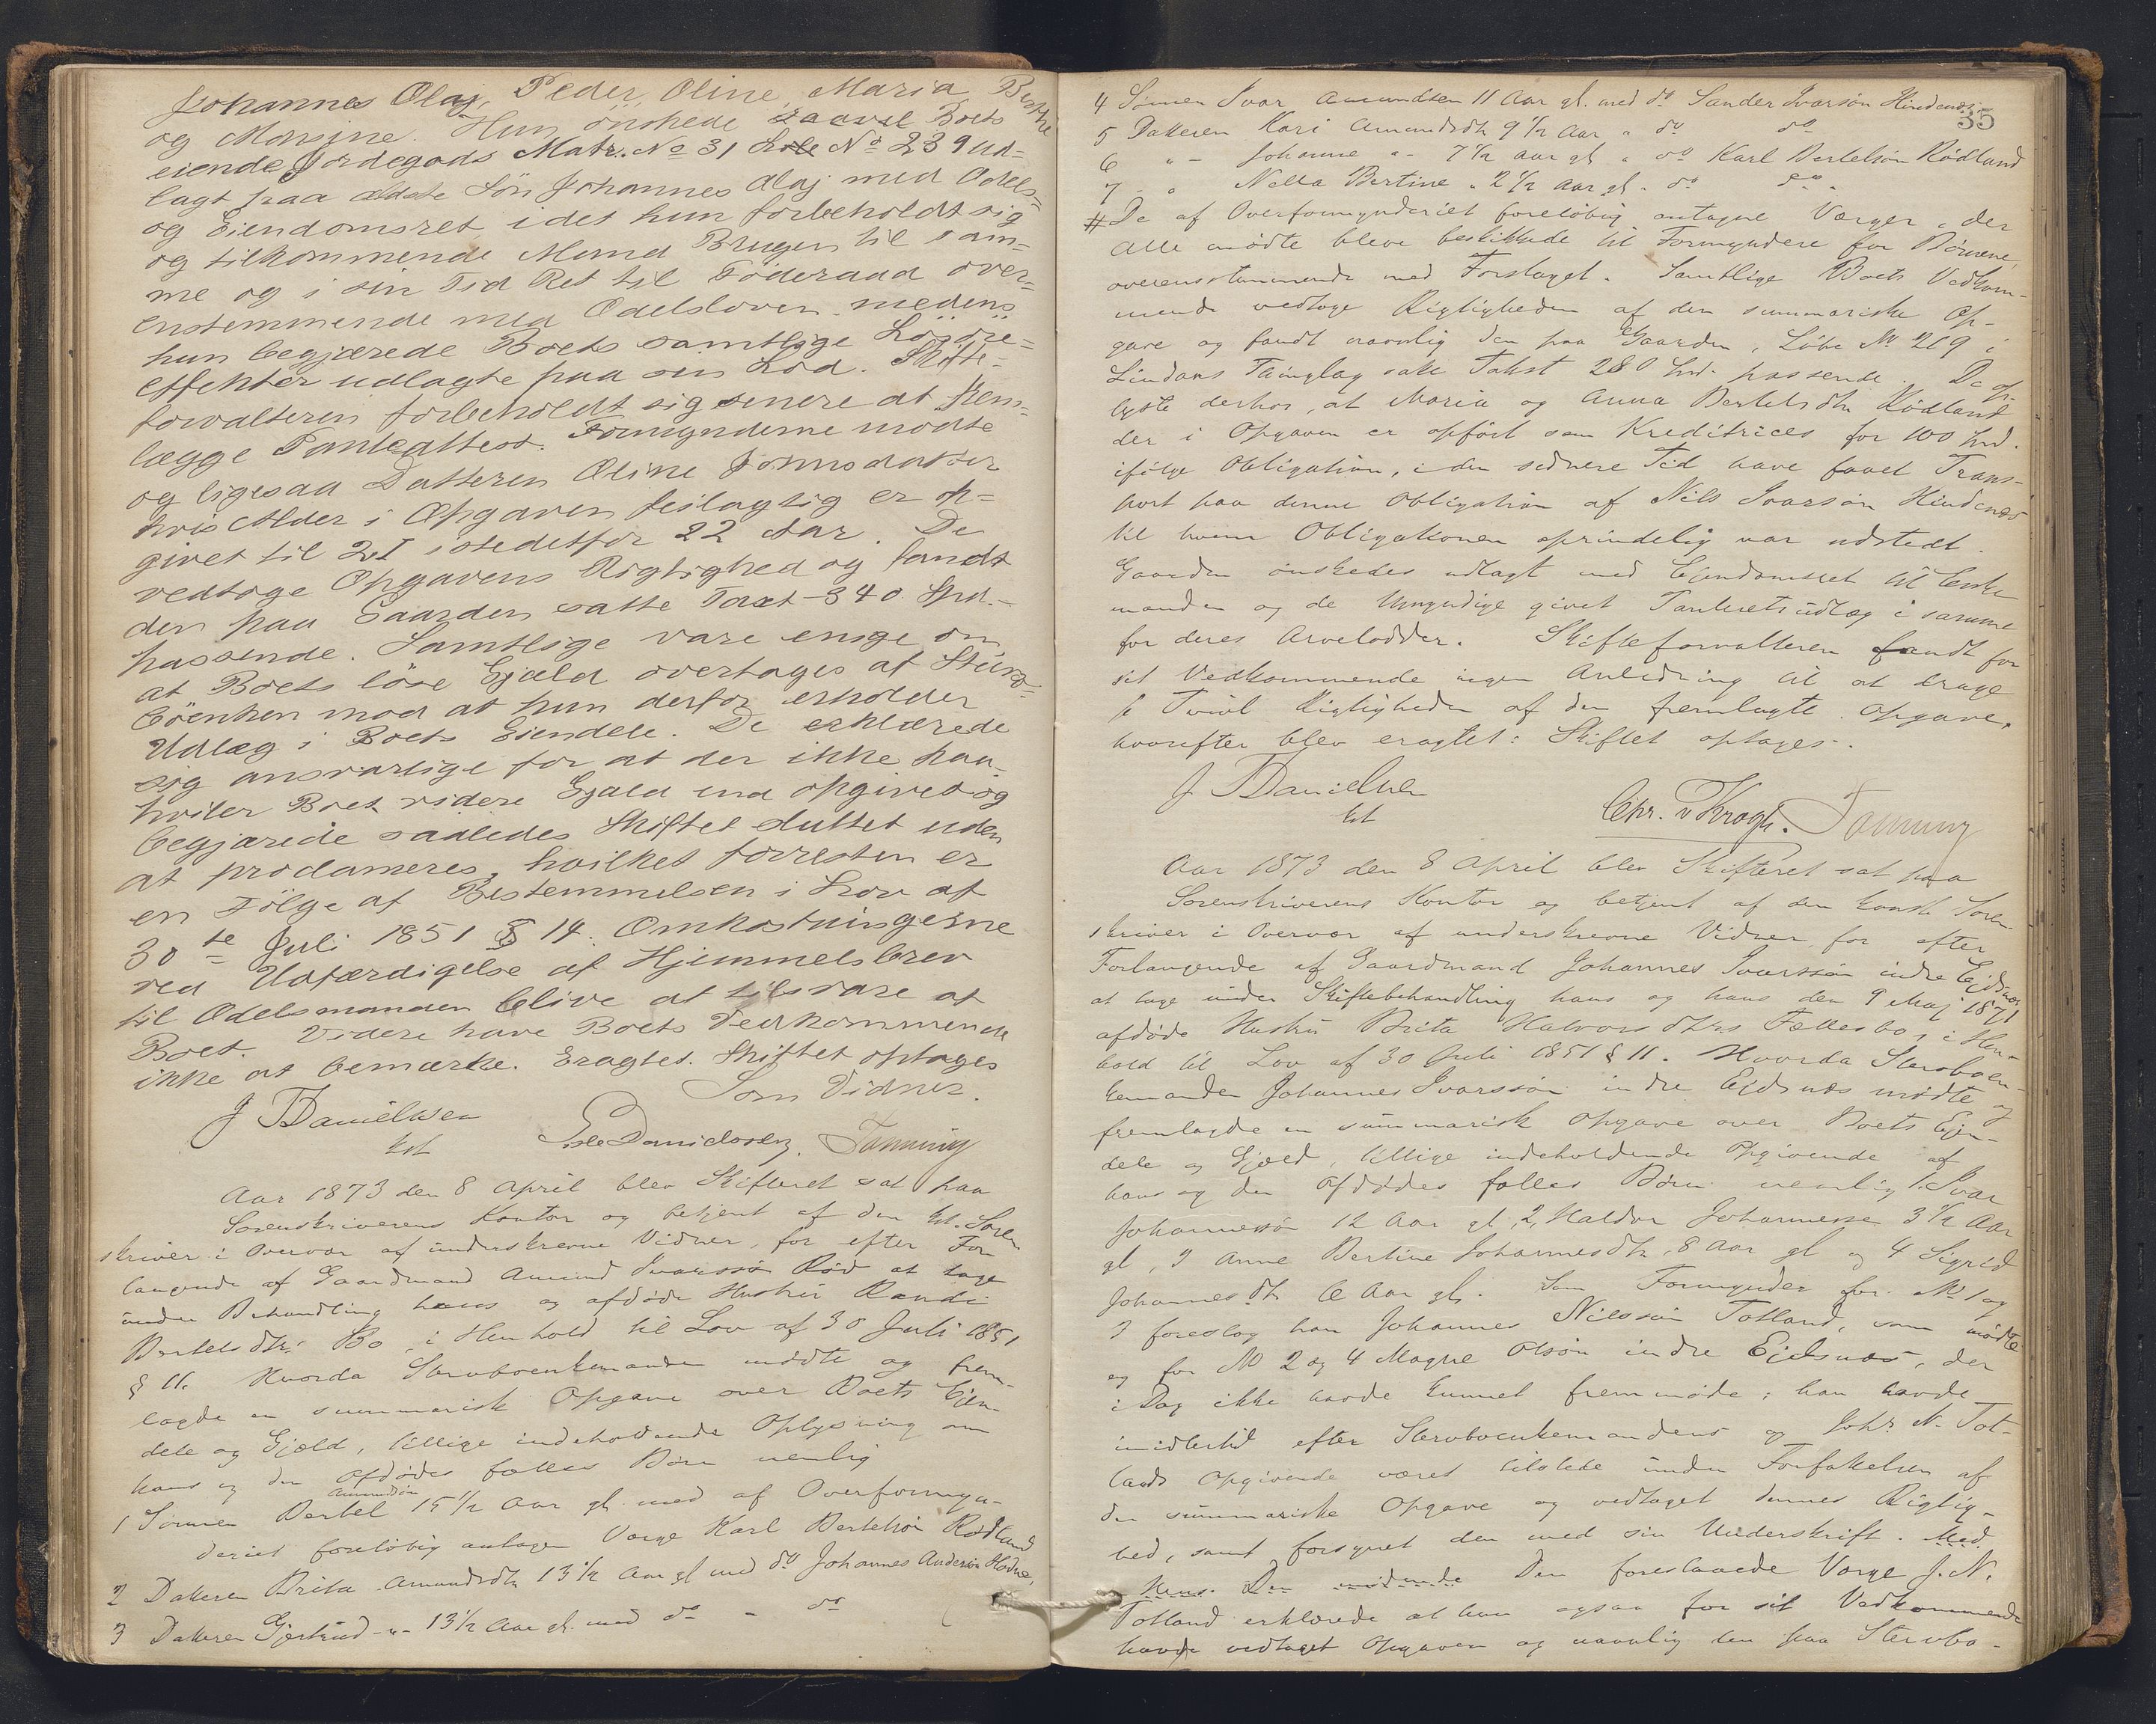 Johannes Olaj, Peder, Oline, Maria, Berthe
og Marsine. Hun önskede saavel Boets
eiende Jordegods Matr. No 31 Löbe No 239 ud-
lagt paa ældste Sön Johannes Olaj med Odels-
og Eiendomsret idet hun forbeholdt sig
og tilkommende Mand Brugen til sam-
me og i sin Tid Ret til Föderaad over-
enstemmende med Odelsloven medens
hun begjærede Boets samtlige Lösöre-
effekter udlagte paa sin Lod. Skifte-
forvalteren forbeholdt sig senere at frem-
lægge Panteattest. Formynderne mödte
og ligesaa Datteren Oline Johnsdatter
hvis Alder i Opgaven feilagtig er op-
givet til 21 istedetfor 22 Aar. De
vedtoge Opgavens Rigtighed og fandt
den paa Gaarden satte Taxt 340 Spd.
passende. Samtlige vare enige om
at Boets löse Gjæld overtages af Stærv-
böenken mod at hun derfor erholder
Udlæg i Boets Eiendele. De erklærede
sig ansvarlige for at der ikke paa-
hviler Boet videre Gjæld end opgivet og
begjærede saaledes Skiftet sluttet uden
at proclameres, hvilket forresten er
en Fölge af Bestemmelsen i Lov af
30te Juli 1851 § 14. Omkostningerne
ved Udfærdigelse af Hjemmelsbrev
til Odelsmanden blive at tilsvare af
Boet. Videre have Boets Vedkommende
ikke at bemærke. Eragtet. Skiftet optages
Som Vidner.
J Danielsen
kst
Danielsen. Fanning
Aar 1873 den 8 April blev Skifteret sat paa
Sorenskriverens Kontor og betjent af den kst. Soren
skriver i Overvær af underskrevne Vidner, for efter For
langende af Gaardmand Amund Ivarssön Röd at tage
under Behandling hans og afdöde Hustru Randi
Bertelsdtrs Bo, i Henhold til Lov af 30 Juli 1851
§ 11. Hvorda Stervboenkemanden mödte og frem-
lagde en summarisk Opgave over Boets Ejen-
dele og Gjæld, tillige indeholdende Oplysning om
hans og den Afdödes fælles Börn nemlig
Amundsön
1 Sönnen Bertel 15 1/2 Aar gl. med af Overformyn-
deriet forelöbig antagen Værge Karl Bertelsön Rödland
2 Datteren Brita Amundsdtr 13 1/2 Aar gl med do Johannes Andersön Hodne,
3 Datteren Gjertrud -"- 13 1/2 Aar gl. med do - do
35
4 Sönnen Ivar Amundsen 11 Aar gl. med do Sander Ivarsön Hindenæs
5 Datteren Kari Amundsdtr 9 1/2 Aar " do do
6 " - Johanne " - 7 1/2 Aar gl " do Karl Bertelsön Rödland
7 - " Nella Bertine " 2 1/2 Aar gl. " do do.
# De af Overformynderiet forelöbig antagne Værger, der
alle mödte bleve beskikkede til Formyndere for Börnene,
overensstemmende med Forslaget. Samtlige Boets Vedkom-
mende vedtoge Rigtigheden af den summariske Op-
gave og fandt navnlig den paa Gaarden, Löbe No 209 i
Lindaas Thinglag satte Takst 280 Spd. passende. De op-
lyste derhos, at Maria og Anna Bertelsdtr Rödland
der i Opgaven er opfört som Kreditrices for 100 Spd.
ifölge Obligation, i den sednere Tid have faaet Trans-
port paa denne Obligation af Nils Ivarsön Hindenæs
til hvem Obligationen oprindelig var udstedt.
Gaarden önskedes udlagt med Ejendomsret til Enke
manden og de Umyndige givet Panteretsudlæg i samme
for deres Arvelodder. Skifteforvalteren fandt for
sit Vedkommende ingen Anledning til at drage
i Tvivl Rigtigheden af den fremlagte Opgave,
hvorefter blev eragtet: Skiftet optages.
J Danielsen
kst
Chr. v Krogh. Fanning
Aar 1873 den 8 April blev Skifteret sat paa
Sorenskriverens Kontor og betjent af den konst. Soren
skriver i Overvær af underskrevne Vidner for efter
Forlangende af Gaardmand Johannes Ivarssön indre Eidsnæs
at tage under Skiftebehandling hans og hans den 9 Maj 1871
afdöde Hustru Brita Halvorsdtrs Fællesbo, i Hen-
hold til Lov af 30 Juli 1851 § 11. Hvorda Stervboen-
kemanden Johannes Ivarssön indre Eidsnæs mödte og
fremlagde en summarisk Opgave over Boets Ejen-
dele og Gjæld, tillige indeholdende Opgivende af
hans og den Afdödes fælles Börn nemlig 1. Ivar
Johannessön 12 Aar gl, 2, Haldor Johannessen 3 1/2 Aar
gl, 3 Anne Bertine Johannesdtr, 8 Aar gl og 4 Sigrid
Johannesdtr 6 Aar gl. Som Formynder for No 1 og
3 foreslog han Johannes Nilssön Totland, som mödte
og for No 2 og 4 Magne Olsön indre Eidsnæs, der
i Dag ikke havde kunnet fremmöde; han havde
imidlertid efter Stervboenkemandens og Johs N. Tot-
lands Opgivende været tilstede under Forfattelsen af
den summariske Opgave og vedtaget dennes Rigtig-
hed, samt forsynet den med sin Underskrift. Med
Hens. Den mödende Den foreslaaede Værge J. N.
Totland erklærede at han ogsaa for sit Vedkommende
havde vedtaget Opgaven og navnlig den paa Stervbo-